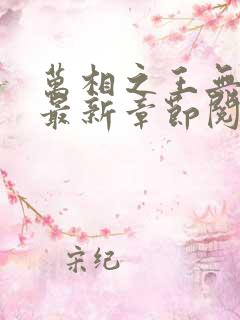 萬相之王無
最新章節閱
宋纪